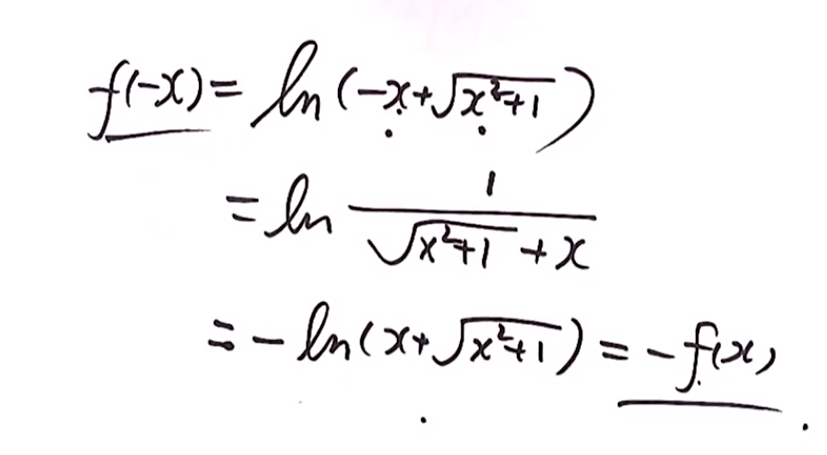 f(-x) = ln(-x+√(x²+1))
= ln 1/(√(x²+1) + x)
= -ln(x+√(x²+1)) = -f(x)